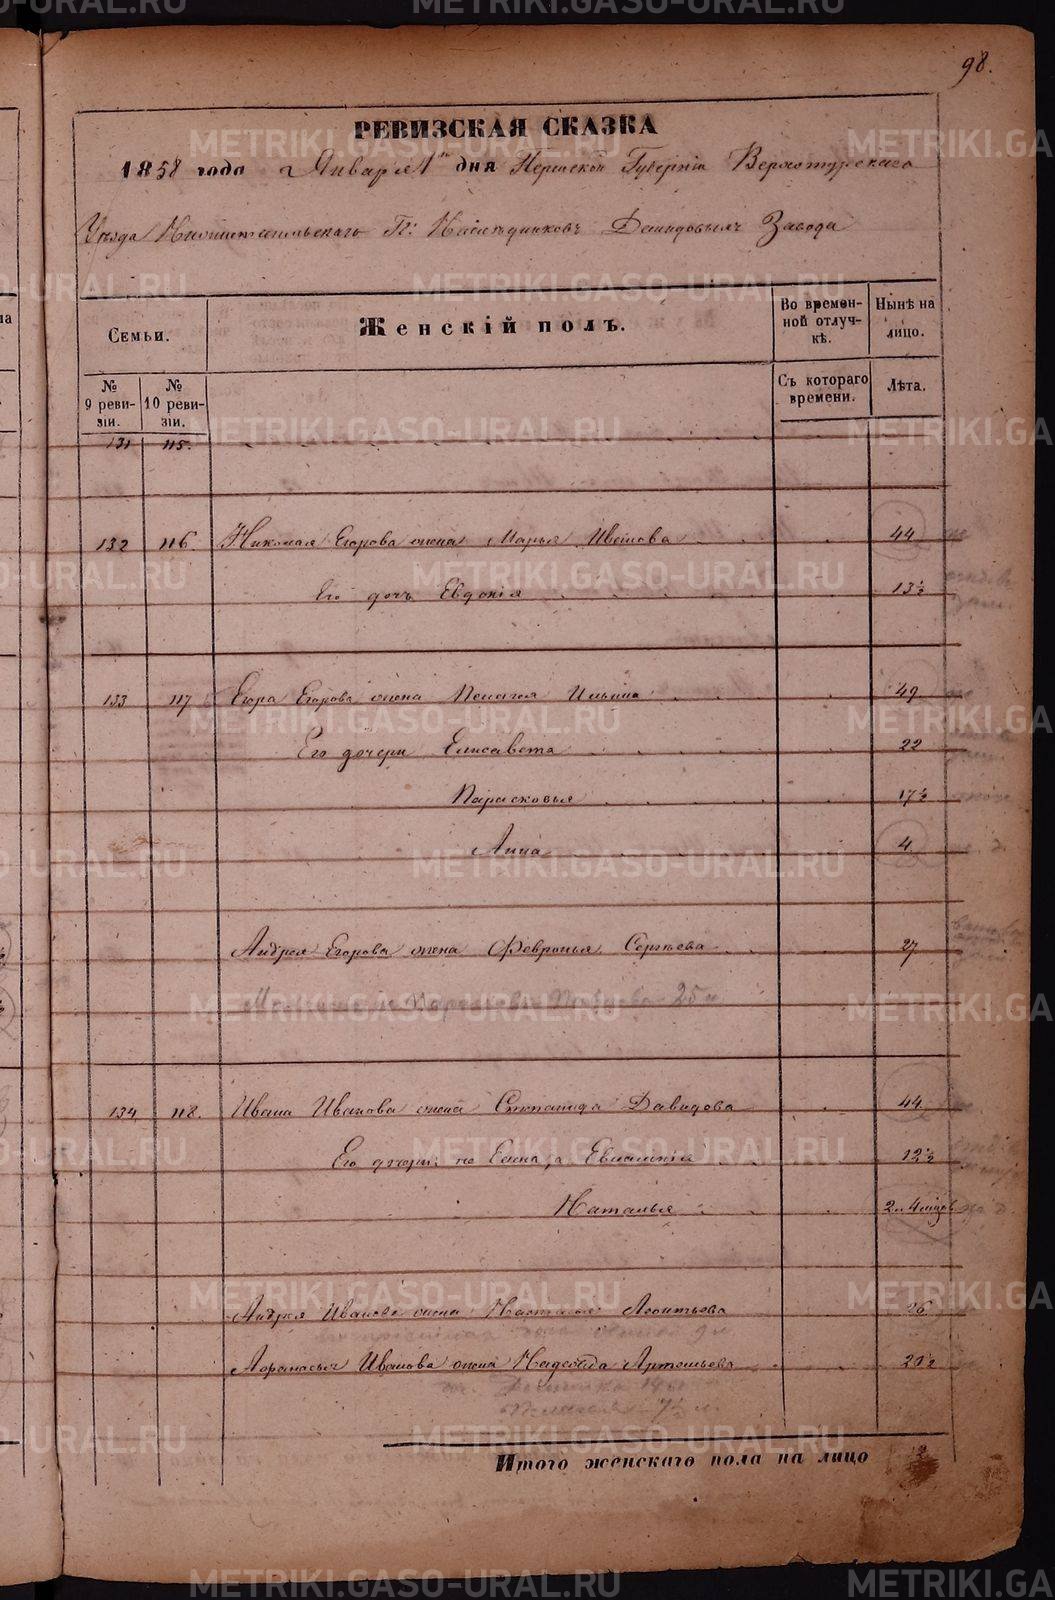 98.
РЕВИЗСКАЯ СКАЗКА
1858 года Января 1го дня Пермской Губерніи Верхотурскаго
Уѣзда Нижнетагильскаго Гг: Наслѣдниковъ Демидовыхъ Завода
Семьи.
Женскій полъ.
Во временной отлучкѣ.
Нынѣ на лицо.
№ 9 ревизіи.
№ 10 ревизіи.
Съ котораго времени.
Лѣта.
131 115.
132 116. Николая Егорова жена Марья Иванова 44
Его дочь Евдокія 13½
133 117 Егора Егорова жена Пелагея Ильина 49
Его дочери Елисавета 22
Парасковья 17½
Анна 4
Андрея Егорова жена Февронья Сергѣева 27
Парасковья 25
134 118. Ивана Иванова жена Степанида Давидова 44
Его дочери: не Елена, а 12½
Наталья 2 и 4 мѣсяц.
Андрея Иванова жена Настасья Леонтьева 26
Афанасья Иванова жена Надежда Артемьева 21½
Итого женскаго пола на лицо
METRIKI.GASO-URAL.RU